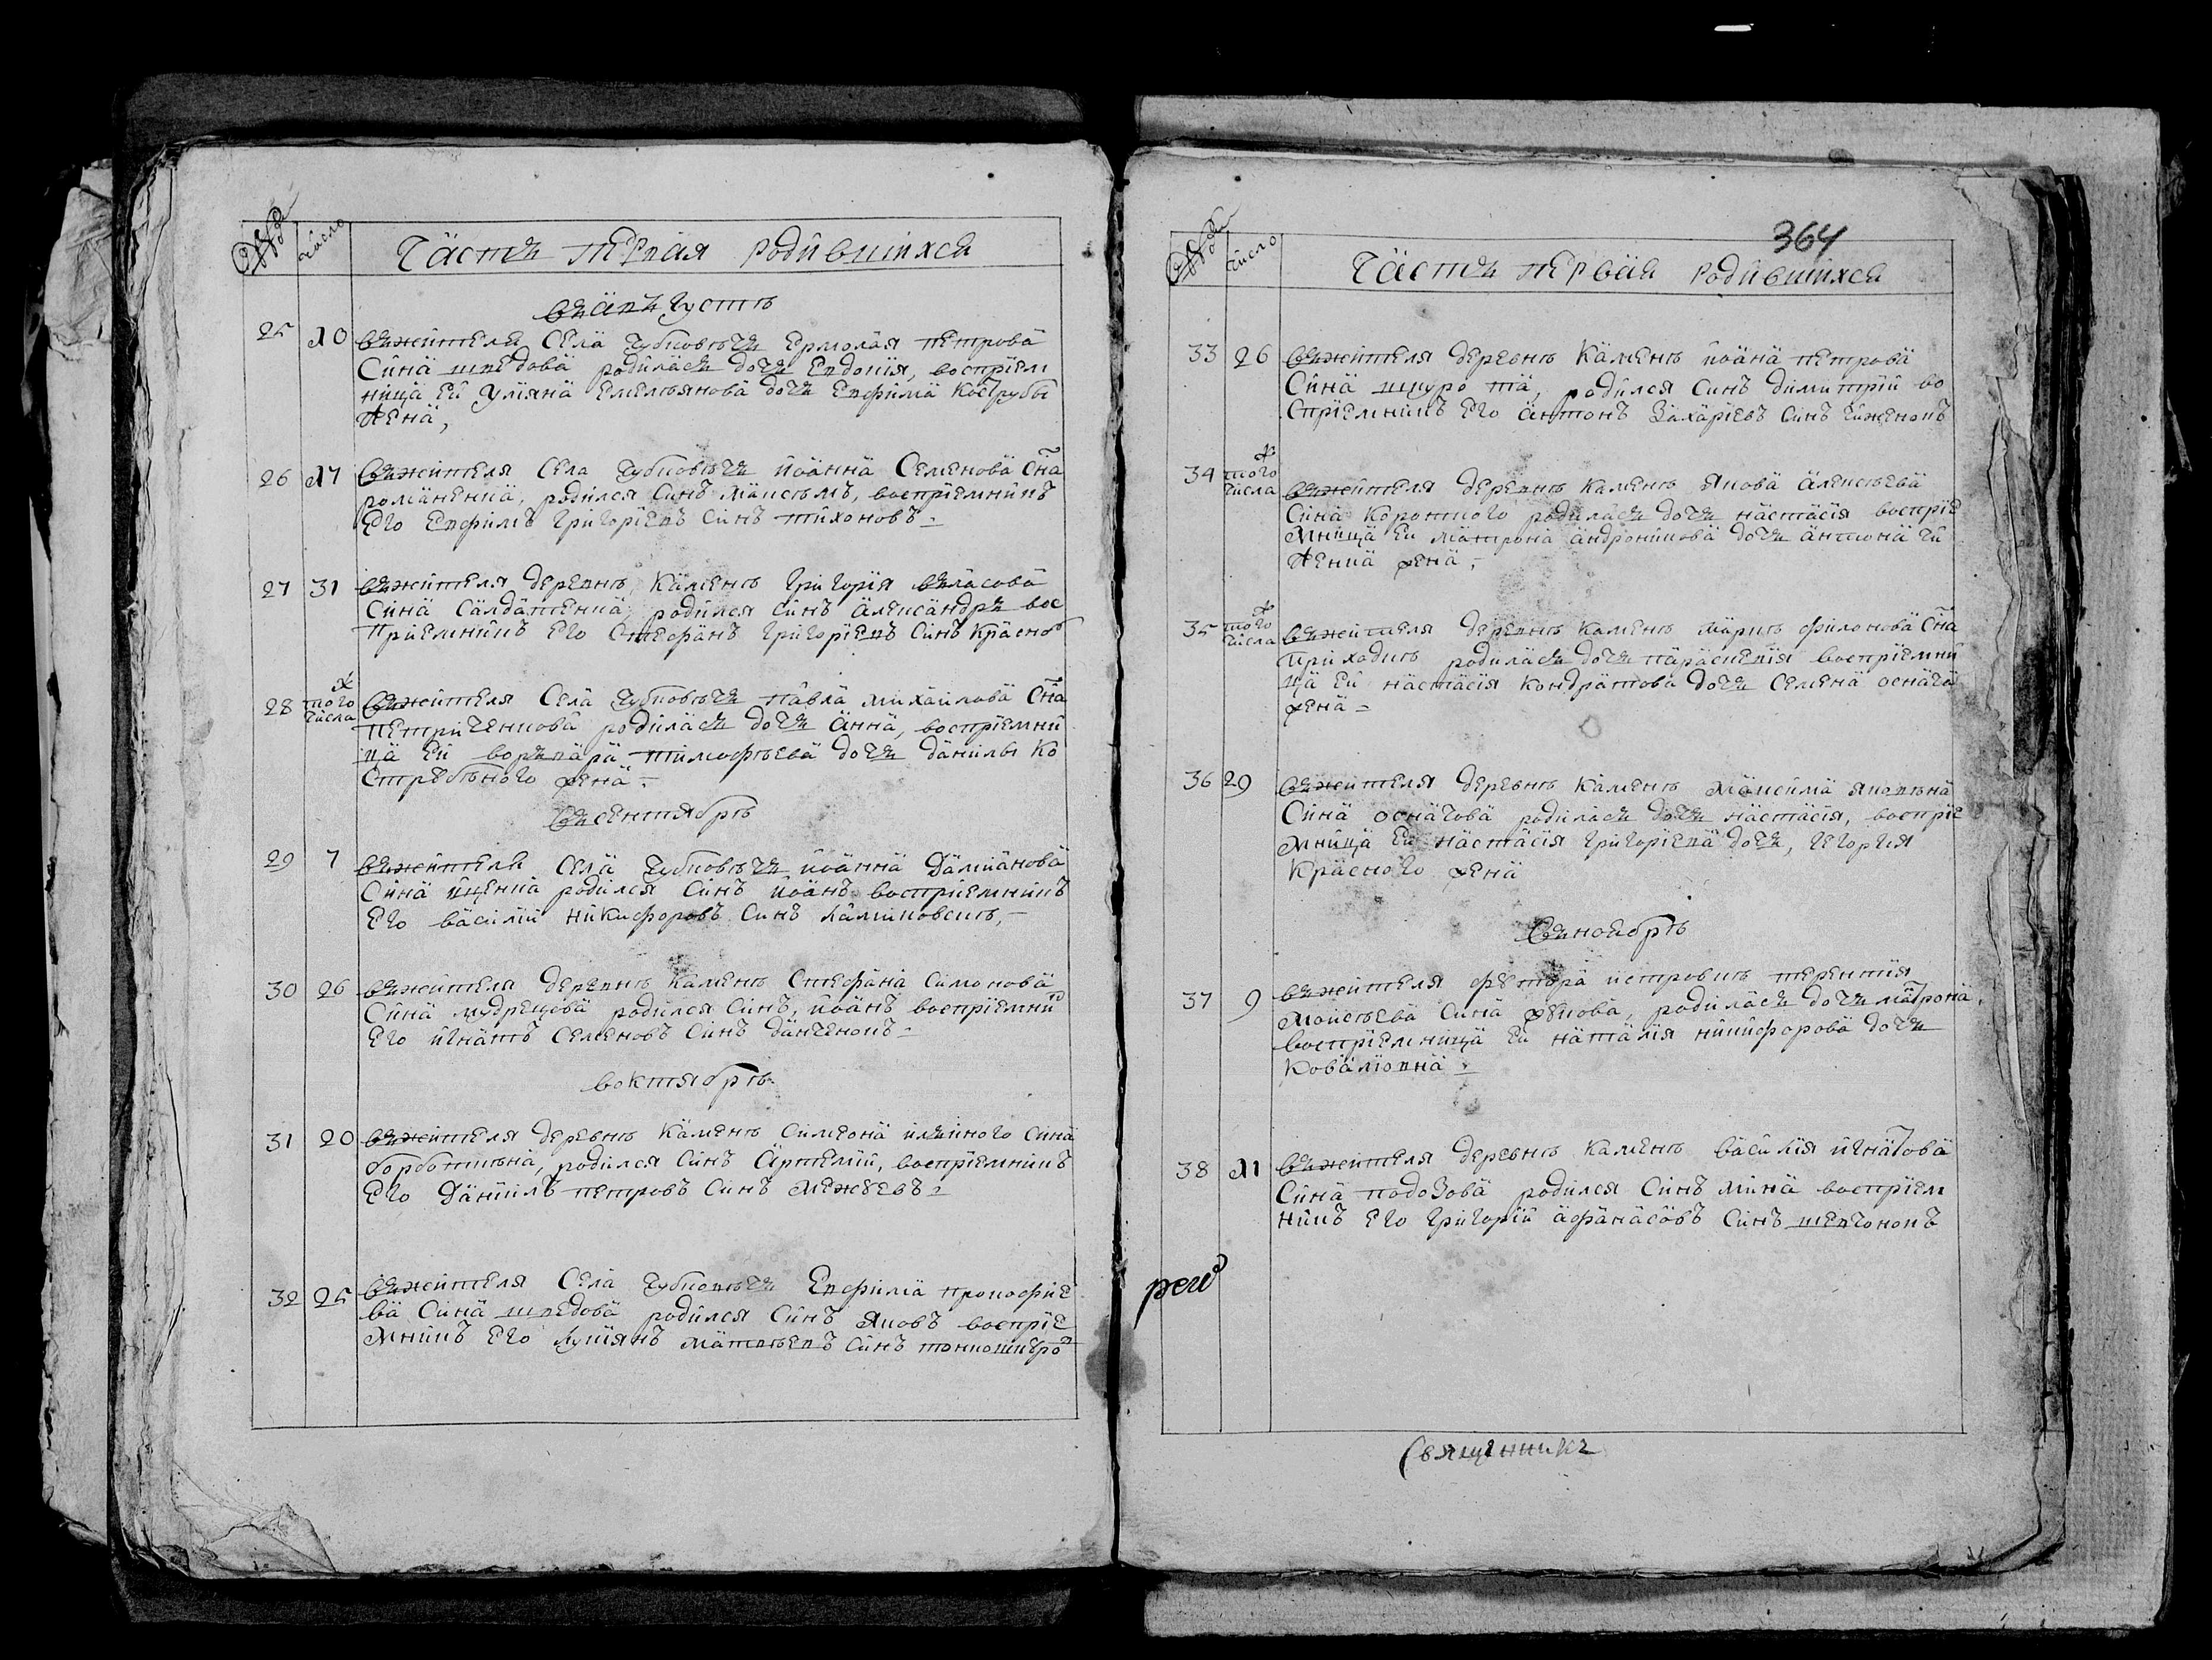 число
Часть перъвая родившихся
въ августѣ
25 10 въ жителя села чубковѣчъ Ермолая петрова
сина шведова родилась дочъ Евдокия, восприем
ница ей улияна Емельянова дочъ Евфима
жена,
26 17 въ жителя села чубковѣчъ иоанна Семенова сна
романенка, родился синъ маисѣмъ, восприемникъ
Его Евфимъ григориевъ синъ тихоновъ
27 31 въ жителя деревнѣ каменѣ григория власова
сина салдатенка родился синъ александръ вос
приемникъ Его Стефанъ григориевъ синъ красно
28 того числа въ жителя села чубковѣчъ павла михаилова сна
петриченкова родилась дочъ анна, восприемни
ца ей ворвара тимофѣева дочъ данилы ко
стребѣного жена
въ сентябрѣ
29 7 въ жителя села чубковѣчъ иоанна дамианова
сина иценка родился синъ иоанъ восприемникъ
Его василий никифоровъ синъ калиновскъ
30 26 въ жителя деревнѣ каменѣ стефана симонова
сина мудрецева родился синъ, иоанъ восприемник
Его игнатъ семеновъ синъ данченокъ
в октябрѣ
31 20 въ жителя деревнѣ каменѣ симеона сина
родился синъ артемий, восприемникъ
Его даниилъ петровъ синъ межуевъ
32 25 въ жителя села чубковѣчъ Евфима прокофие
ва сина шведова родился синъ яковъ восприе
мникъ Его лукиянъ матвѣевъ синъ
364
число
Часть первая родившихся
33 26 въ жителя деревнѣ каменѣ иоана петрова
сина родился синъ димитрий во
сприемникъ Его антонъ захариевъ синъ чиженокъ
34 того числа въ жителя деревнѣ каменѣ якова алексѣева
сина короткого родилась дочъ настасия восприе
мница ей матрона андроникова дочъ антона чи
женка жена
35 того числа въ жителя деревнѣ каменѣ марка филонова сна
приходкѣ родилась дочъ параскевия восприемни
ца ей настасия кондратова дочъ семена оснача
жена
36 29 въ жителя деревнѣ каменѣ максима яковѣна
сина осначова родилась дочъ настасия, восприе
мница ей настасия григориева дочъ, георгия
красного жена
въ ноябрѣ
37 9 въ жителя футора петровкѣ терентия
моисѣева сина жукова, родилась дочъ матрона,
восприемница ей наталия никифорова дочъ
ковалювна
38 11 въ жителя деревнѣ каменѣ василия игнатова
сина подозова родился синъ мина восприем
никъ Его григорий афанасовъ синъ шевчонокъ
Священникъ